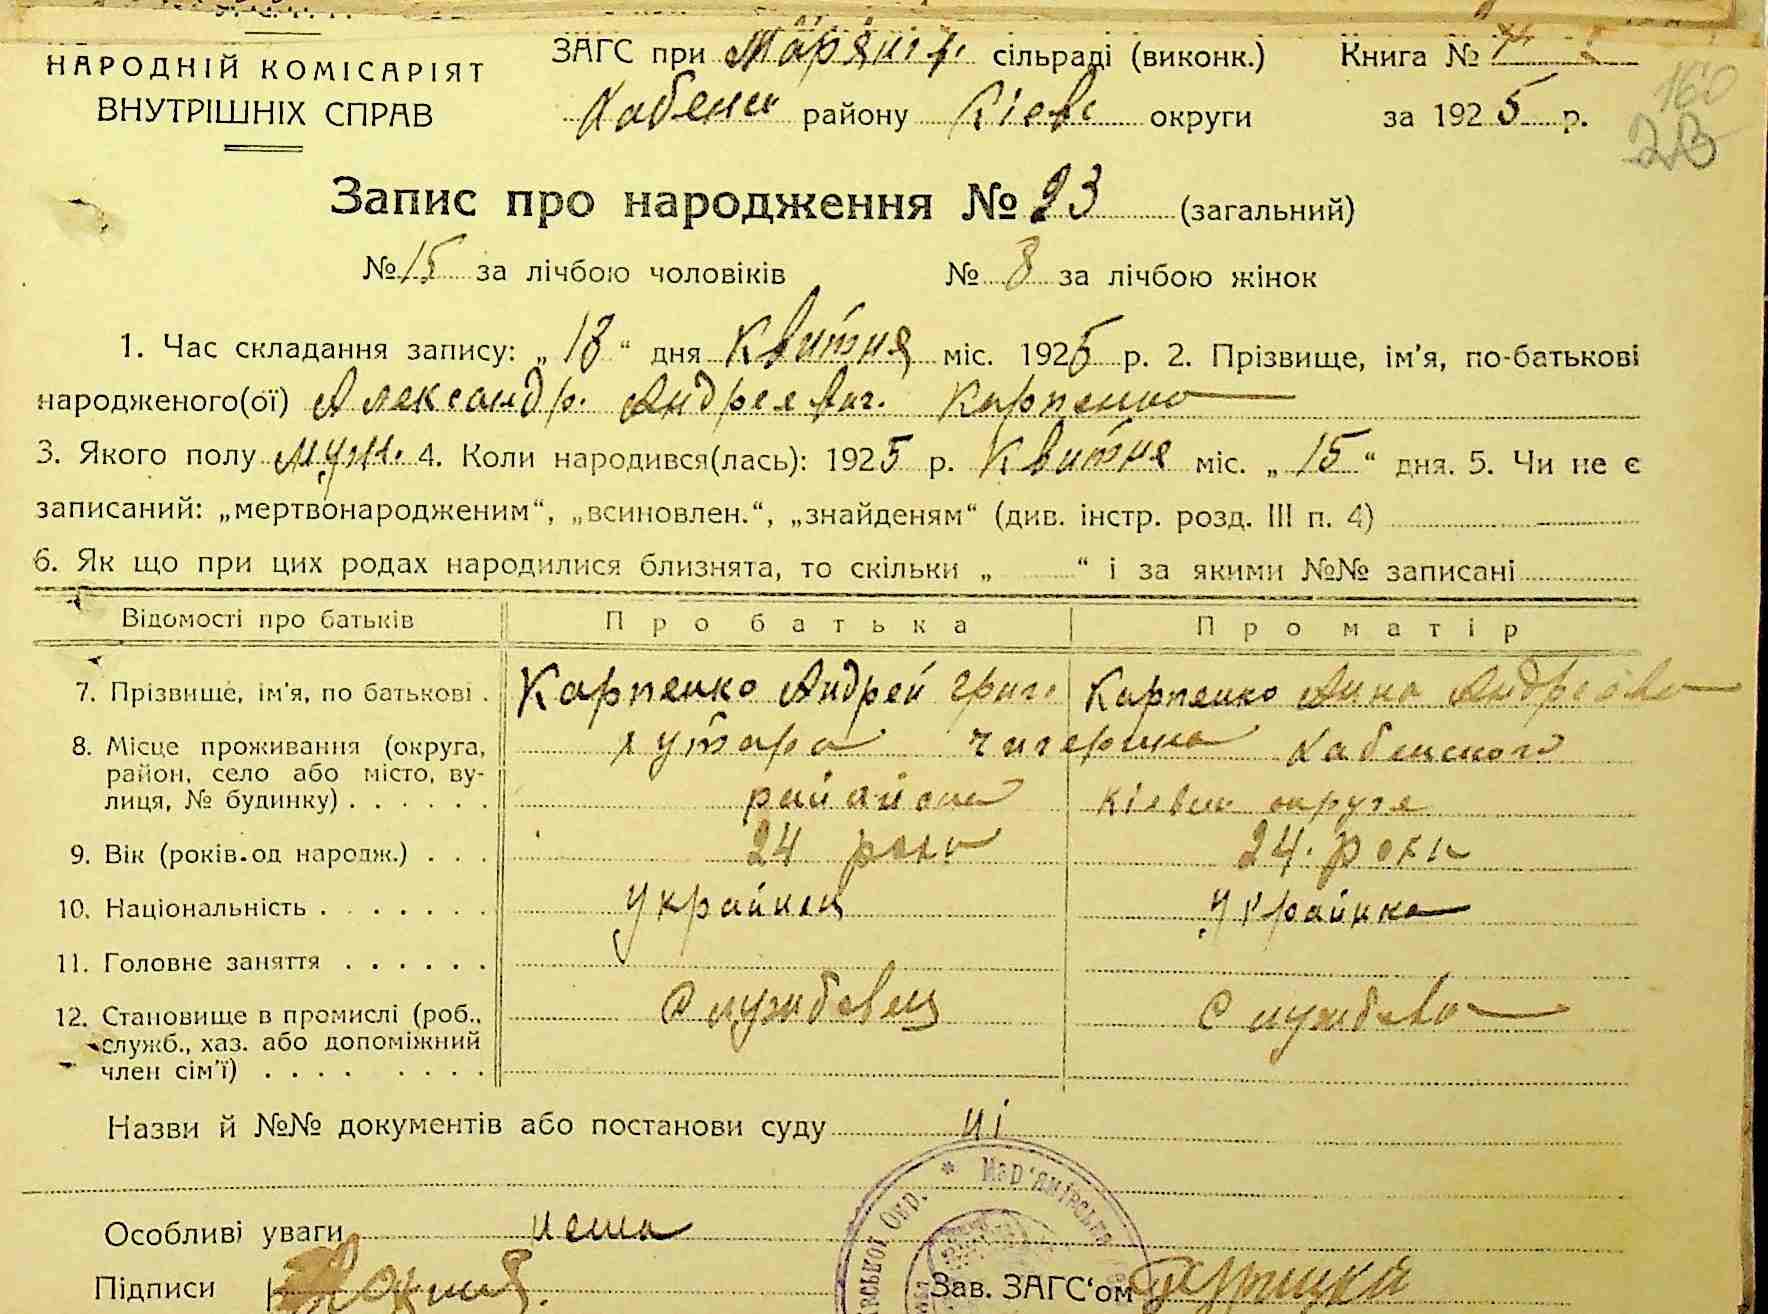 НАРОДНІЙ КОМІСАРІЯТ
ВНУТРІШНІХ СПРАВ
ЗАГС при сільраді (виконк.) Книга №
району Кіевс округи за 1925 р.
160
23
Запис про народження № 23 (загальний)
№ 15 за лічбою чоловіків № 8 за лічбою жінок
1. Час складання запису: „18“ дня Квитня міс. 1925 р. 2. Прізвище, ім'я, по-батькові
народженого(ої) Александр. Андреевич. Карпенко
3. Якого полу муж. 4. Коли народився(лась): 1925 р. Квитня міс. „15“ дня. 5. Чи не є
записаний: „мертвонародженим“, „всиновлен.“, „знайденям“ (див. інстр. розд. III п. 4)
6. Як що при цих родах народилися близнята, то скільки „ “ і за якими №№ записані
Відомості про батьків Про батька Про матір
7. Прізвище, ім'я, по батькові . Карпенко Андрей Григ. Карпенко Анна Андреевна
8. Місце проживання (округа, хутора Чигерина Кабенского
район, село або місто, ву-
лиця, № будинку) . . . . . . округя
9. Вік (років од народж.) . . . 24 роки 24. роки
10. Національність . . . . . . . Украйнец Украйнка
11. Головне заняття . . . . . .
12. Становище в промислі (роб., Службовец Службова
служб., хаз. або допоміжний
член сім'ї) . . . . . . . .
Назви й №№ документів або постанови суду ні
* Мар'янівська
Окр.
Особливі уваги нема
Підписи Зав. ЗАГС'ом